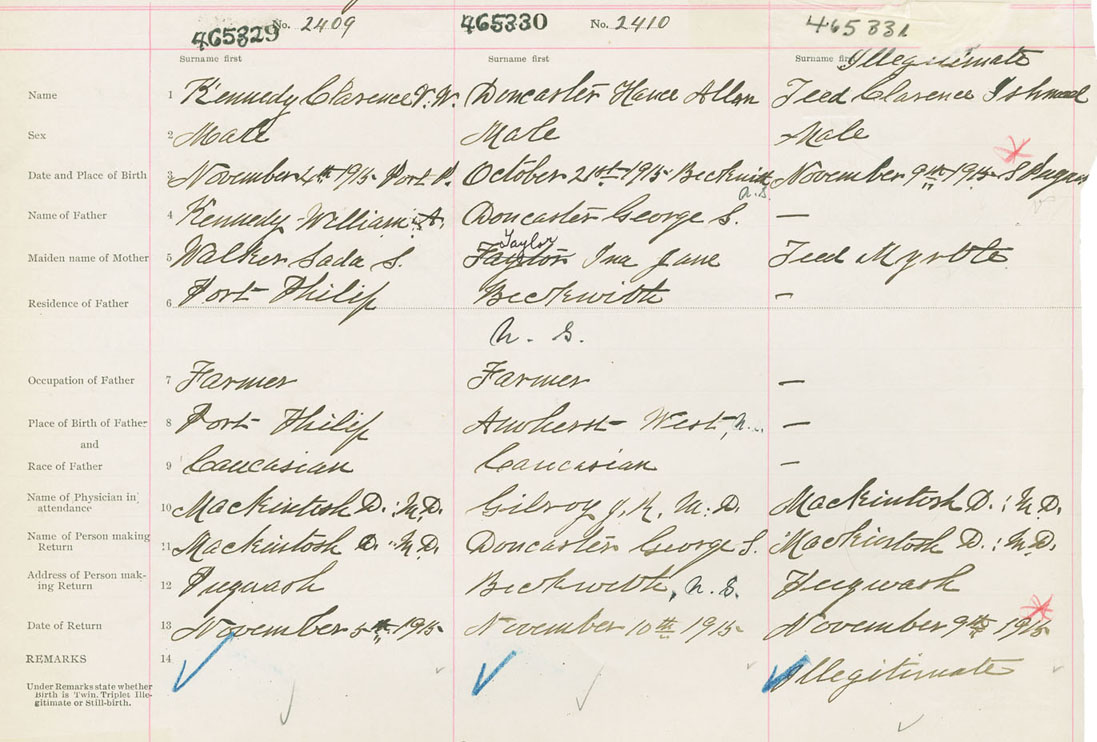 465329 No. 2409 465330 No. 2410 465331
Surname first Surname first Surname first Illegitimate
Name 1 Kennedy Clarence W. Doncaster Hance Allan Teed Clarence Ishmael
Sex 2 Male Male Male
Date and Place of Birth 3 November 4th 1915 Port P. October 21st 1915 Beckwith N.S. November 9th 1915
Name of Father 4 Kennedy William A. Doncaster George S. —
Maiden name of Mother 5 Walker Sada S. Taylor Ina Jane Teed Myrtle
Residence of Father 6 Port Philip Beckwith —
N. S.
Occupation of Father 7 Farmer Farmer —
Place of Birth of Father 8 Port Philip Amherst West, N. —
and
Race of Father 9 Caucasian Caucasian —
Name of Physician in
attendance 10 Mackintosh D. : M.D. Gilroy J. R. M.D. Mackintosh D. : M.D.
Name of Person making
Return 11 Mackintosh D. : M.D. Doncaster George S. Mackintosh D. : M.D.
Address of Person mak-
ing Return 12 Pugwash Beckwith, N.S. Pugwash
Date of Return 13 November 5th 1915 November 10th 1915 November 9th 1915
REMARKS 14 Illegitimate
Under Remarks state whether
Birth is Twin, Triplet Ille-
gitimate or Still-birth.